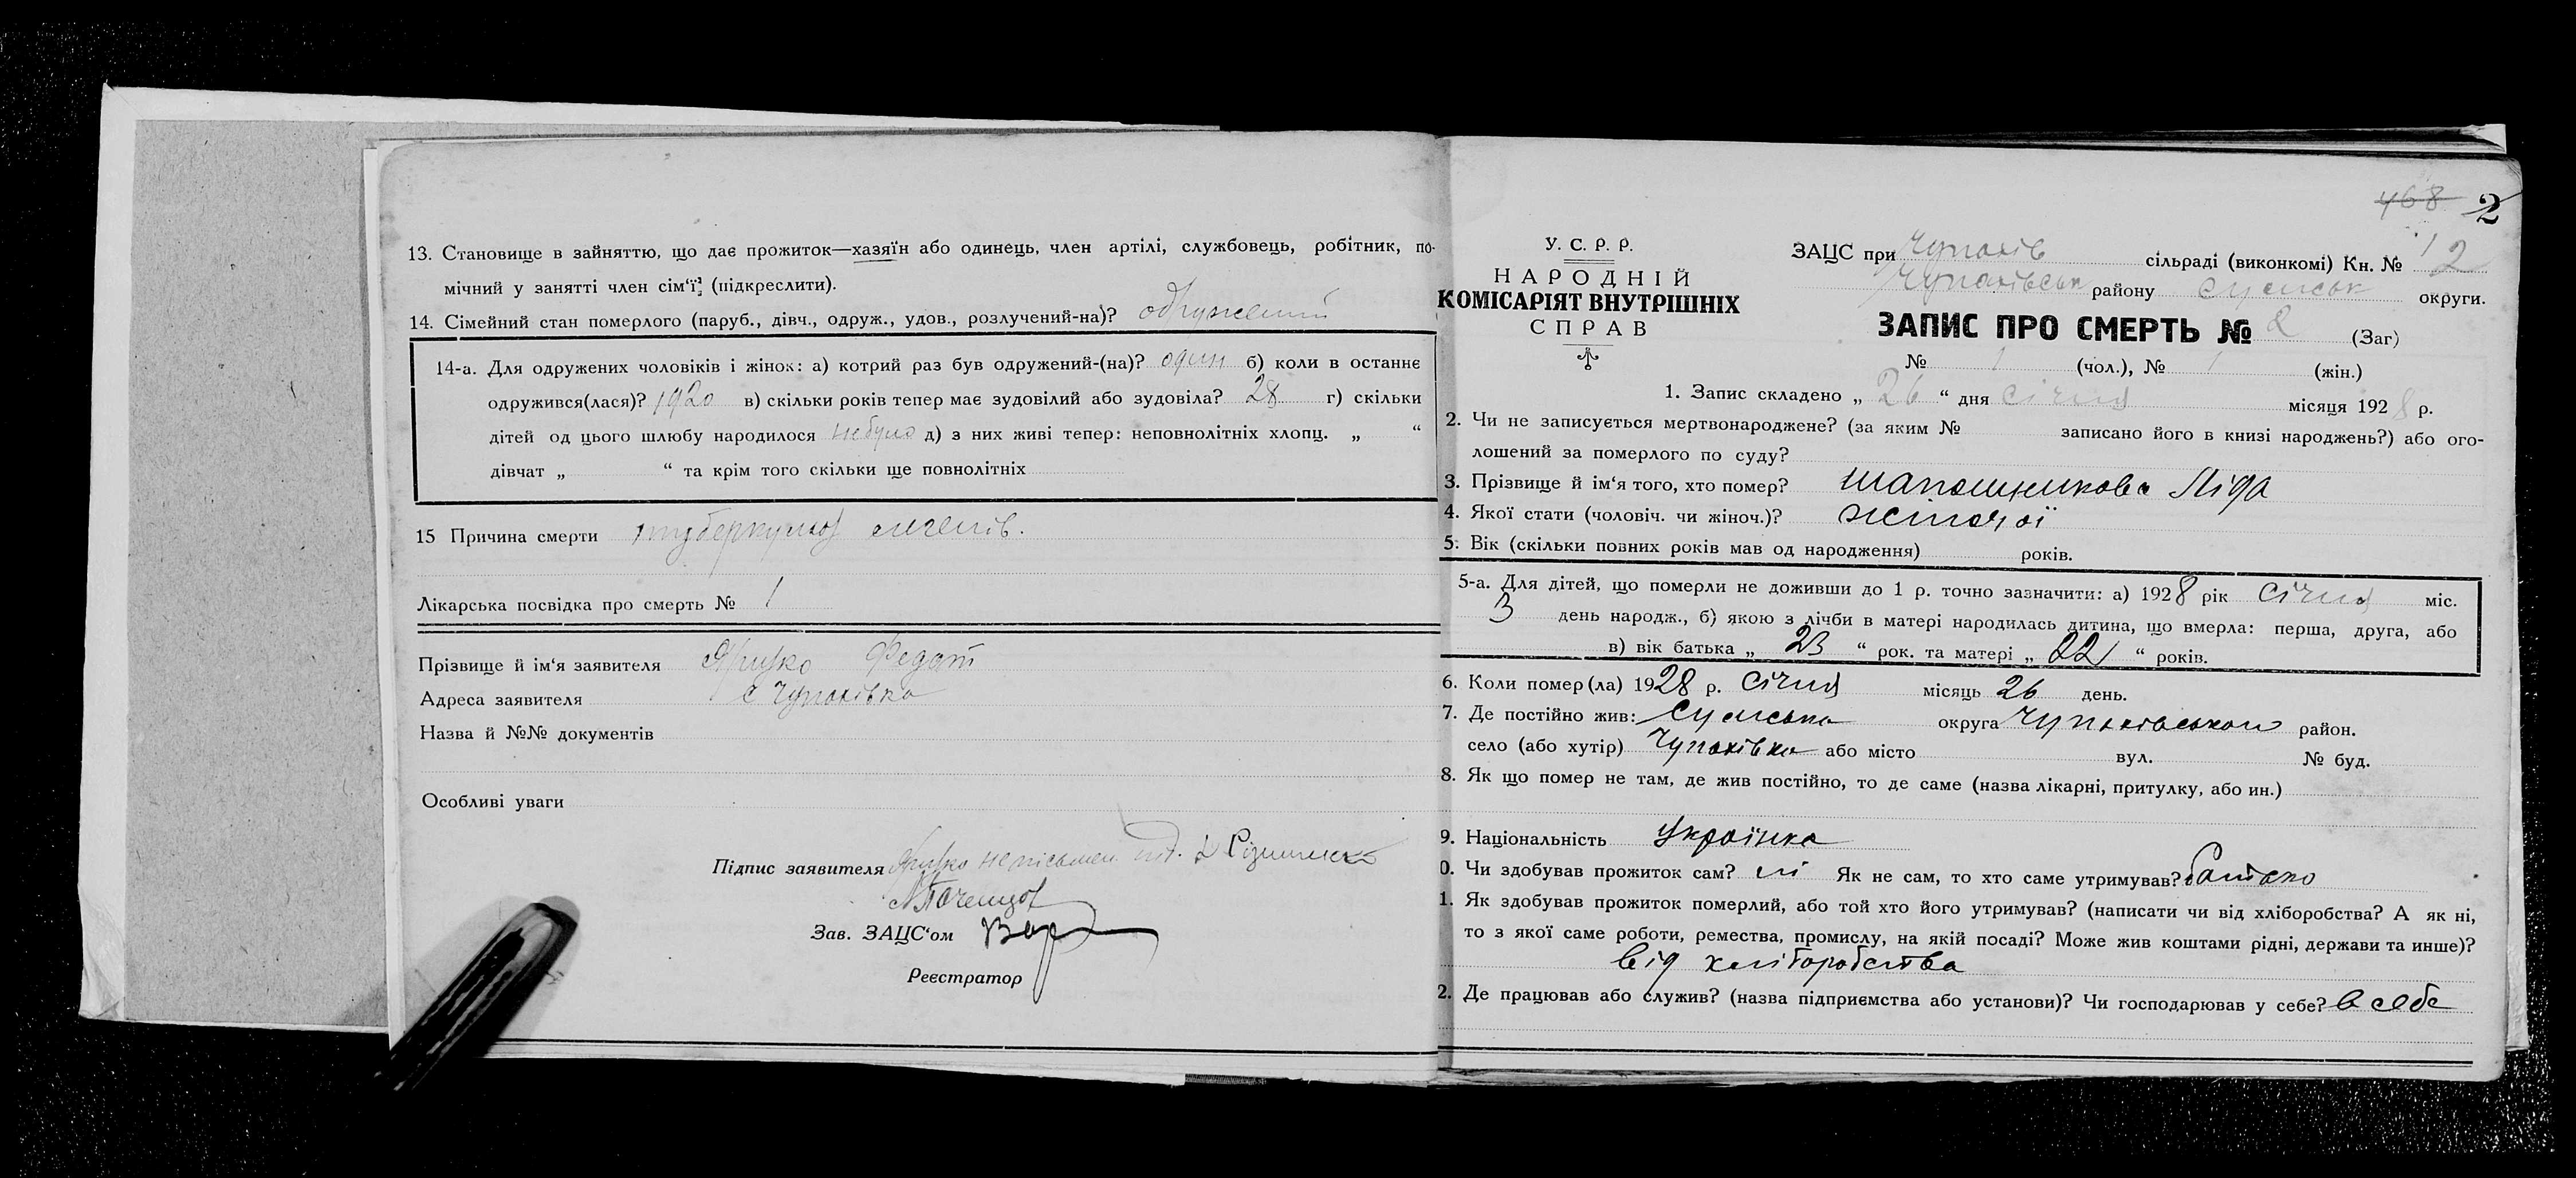 13. Становище в зайняттю, що дає прожиток—хазяїн або одинець, член артілі, службовець, робітник, по-
мічний у занятті член сім'ї; (підкреслити).
14. Сімейний стан померлого (паруб., дівч., одруж., удов., розлучений-на)? одружений
14-а. Для одружених чоловіків і жінок: а) котрий раз був одружений-(на)? один б) коли в останнє
одружився(лася)? 1920 в) скільки років тепер має зудовілий або зудовіла? 28 г) скільки
дітей од цього шлюбу народилося не було д) з них живі тепер: неповнолітніх хлопц. „ “
дівчат „ “ та крім того скільки ще повнолітніх
15 Причина смерти туберкульоз легенів.
Лікарська посвідка про смерть № 1
Прізвище й ім'я заявителя Федот
Адреса заявителя с Чупахівка
Назва й №№ документів
Особливі уваги
Підпис заявителя неписьмен
Зав. ЗАЦС'ом
Реєстратор
468 2
У. С. Р. Р.
НАРОДНІЙ
КОМІСАРІЯТ ВНУТРІШНІХ
СПРАВ
ЗАЦС при Чупахів сільраді (виконкомі) Кн. № 12
Чупахівськ району Сумськ округи.
ЗАПИС ПРО СМЕРТЬ № 2 (Заг)
№ 1 (чол.), № 1 (жін.)
1. Запис складено „ 26 “ дня січня місяця 1928 р.
2. Чи не записується мертвонароджене? (за яким № записано його в книзі народжень?) або ого-
лошений за померлого по суду?
3. Прізвище й ім'я того, хто помер? Шапошникова Ліда
4. Якої стати (чоловіч. чи жіноч.)? жіночої
5. Вік (скільки повних років мав од народження) років.
5-а. Для дітей, що померли не доживши до 1 р. точно зазначити: а) 1928 рік січня міс.
3 день народж., б) якою з лічби в матері народилась дитина, що вмерла: перша, друга, або
в) вік батька „ 23 “ рок. та матері „ 22 “ років.
6. Коли помер(ла) 1928 р. січня місяць 26 день.
7. Де постійно жив: Сумська округа Чупахівською район.
село (або хутір) Чупахівка або місто вул. № буд.
8. Як що помер не там, де жив постійно, то де саме (назва лікарні, притулку, або ин.)
9. Національність Українка
0. Чи здобував прожиток сам? ні Як не сам, то хто саме утримував? батько
1. Як здобував прожиток померлий, або той хто його утримував? (написати чи від хліборобства? А як ні,
то з якої саме роботи, ремества, промислу, на якій посаді? Може жив коштами рідні, держави та инше)?
від хліборобства
2. Де працював або служив? (назва підприємства або установи)? Чи господарював у себе? в себе